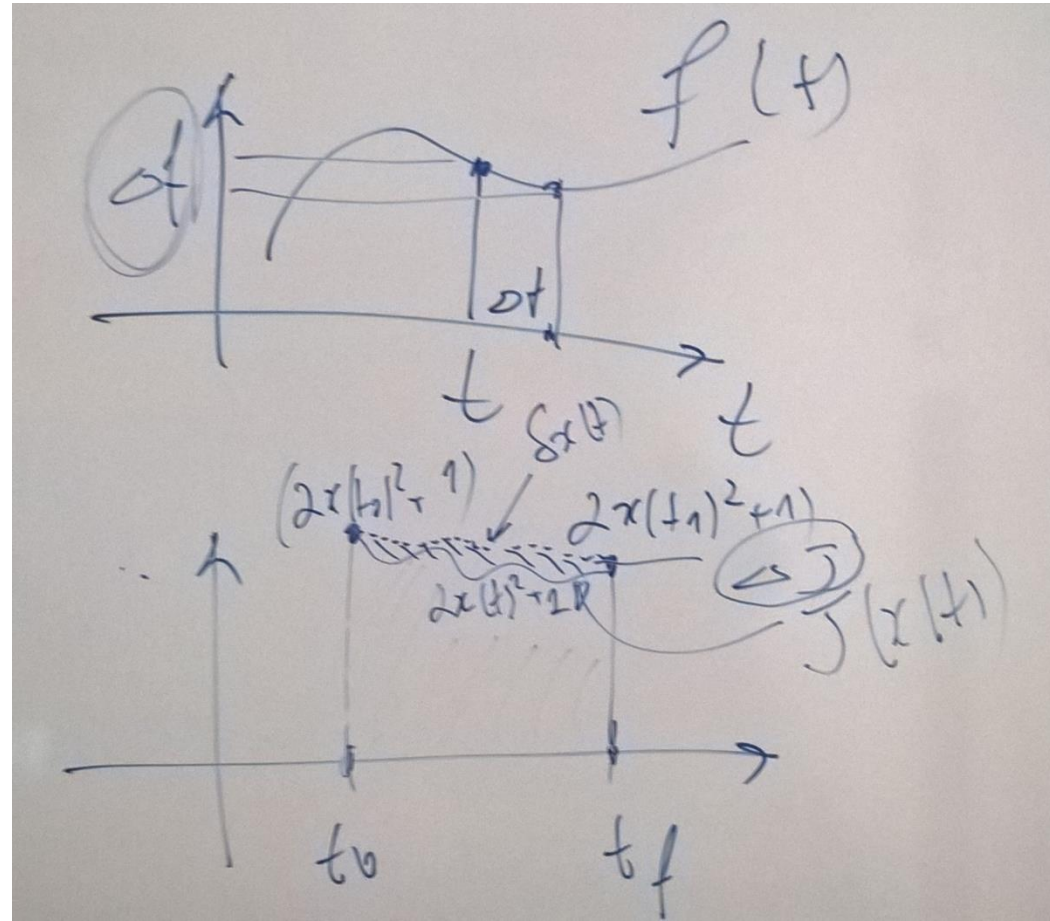 f(t)
Δf
Δt
t
t
δx(t)
(2x(t₀)²+1)
2x(t1)²+1)
2x(t)²+1
ΔJ
J(x(t)
t0
tf